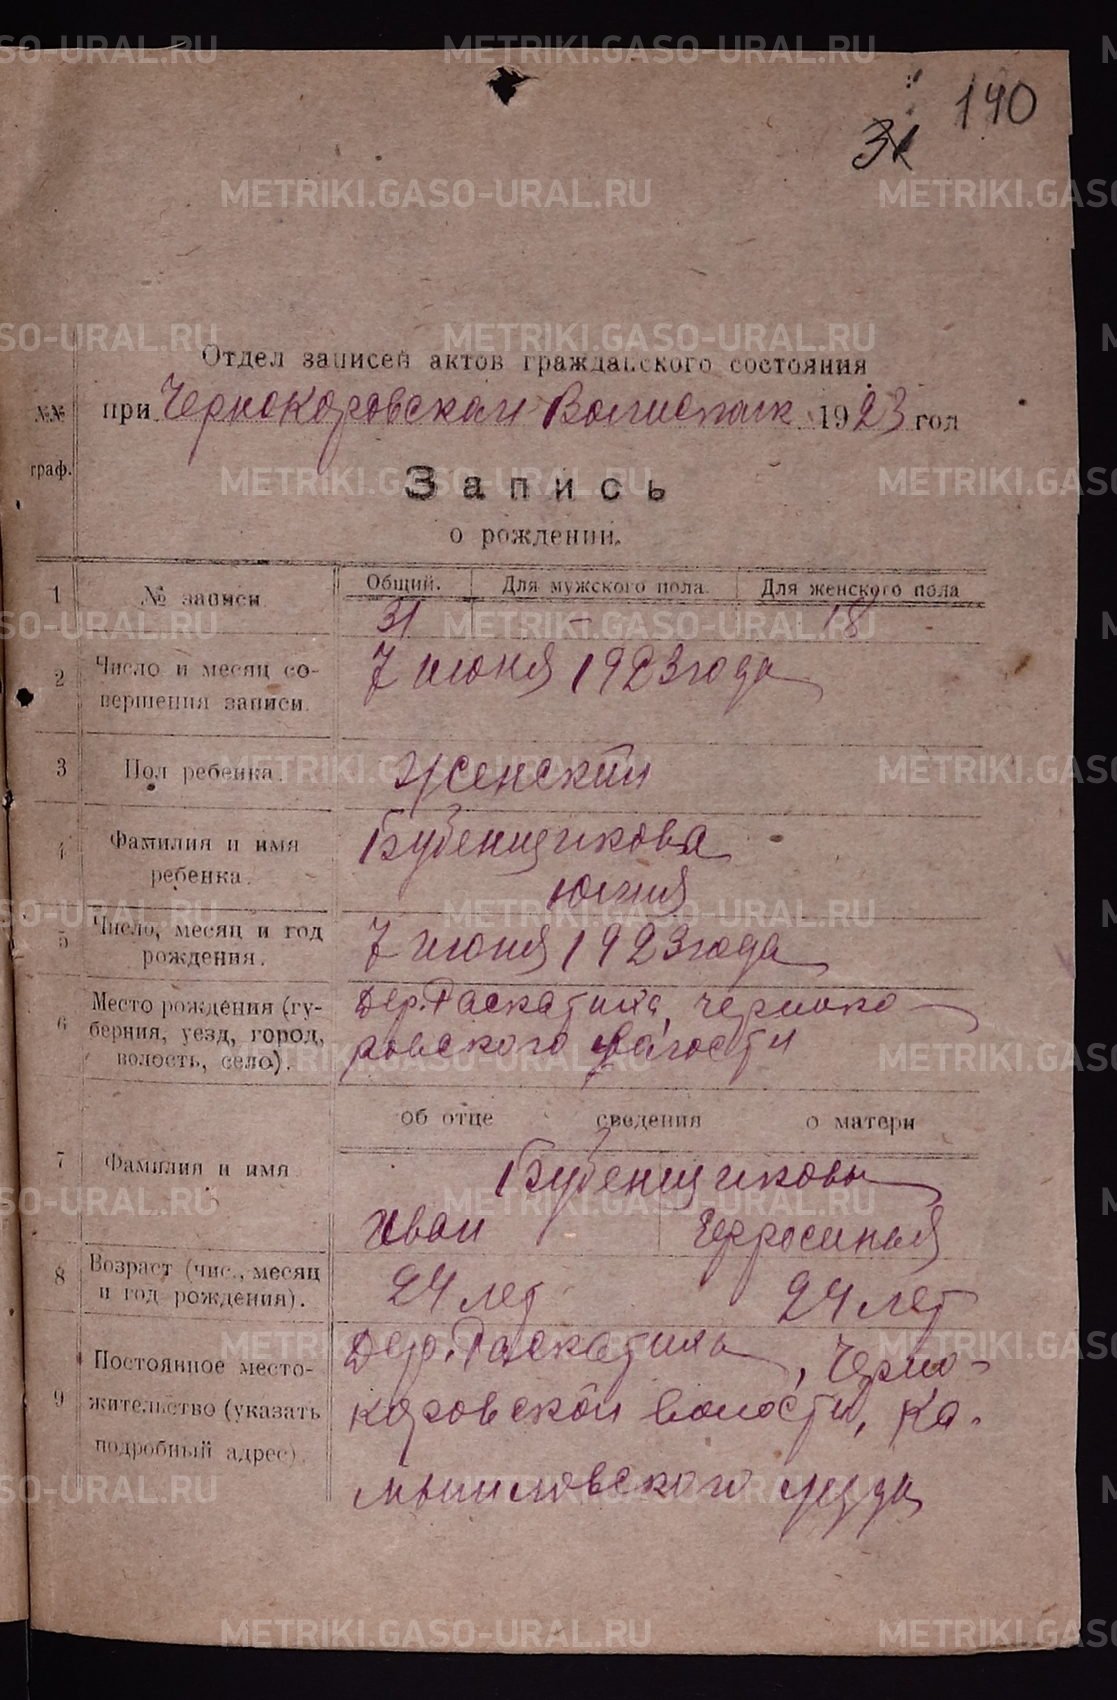 140
31
Отдел записей актов гражданского состояния
при Чернокоровском Волисполк 1923 год
№№
граф.
Запись
о рождении.
Общий. Для мужского пола. Для женского пола
1 № записи 31 - 18
2 Число и месяц со-
вершения записи. 7 июня 1923 года
3 Пол ребенка. Женский
4 Фамилия и имя
ребенка. Бубенщикова
Юлия
5 Число, месяц и год
рождения. 7 июня 1923 года
6 Место рождения (гу-
берния, уезд, город,
волость, село). Дер. Раскатиха, черноко
ровского волости
об отце сведения о матери
7 Фамилия и имя Бубенщиковы
Иван
8 Возраст (чис., месяц
и год рождения). 24 лет 24 лет
9 Постоянное место-
жительство (указать
подробный адрес). Дер. Раскатиха, Черно-
коровской волости, Ка-
мышловского уезда
METRIKI.GASO-URAL.RU